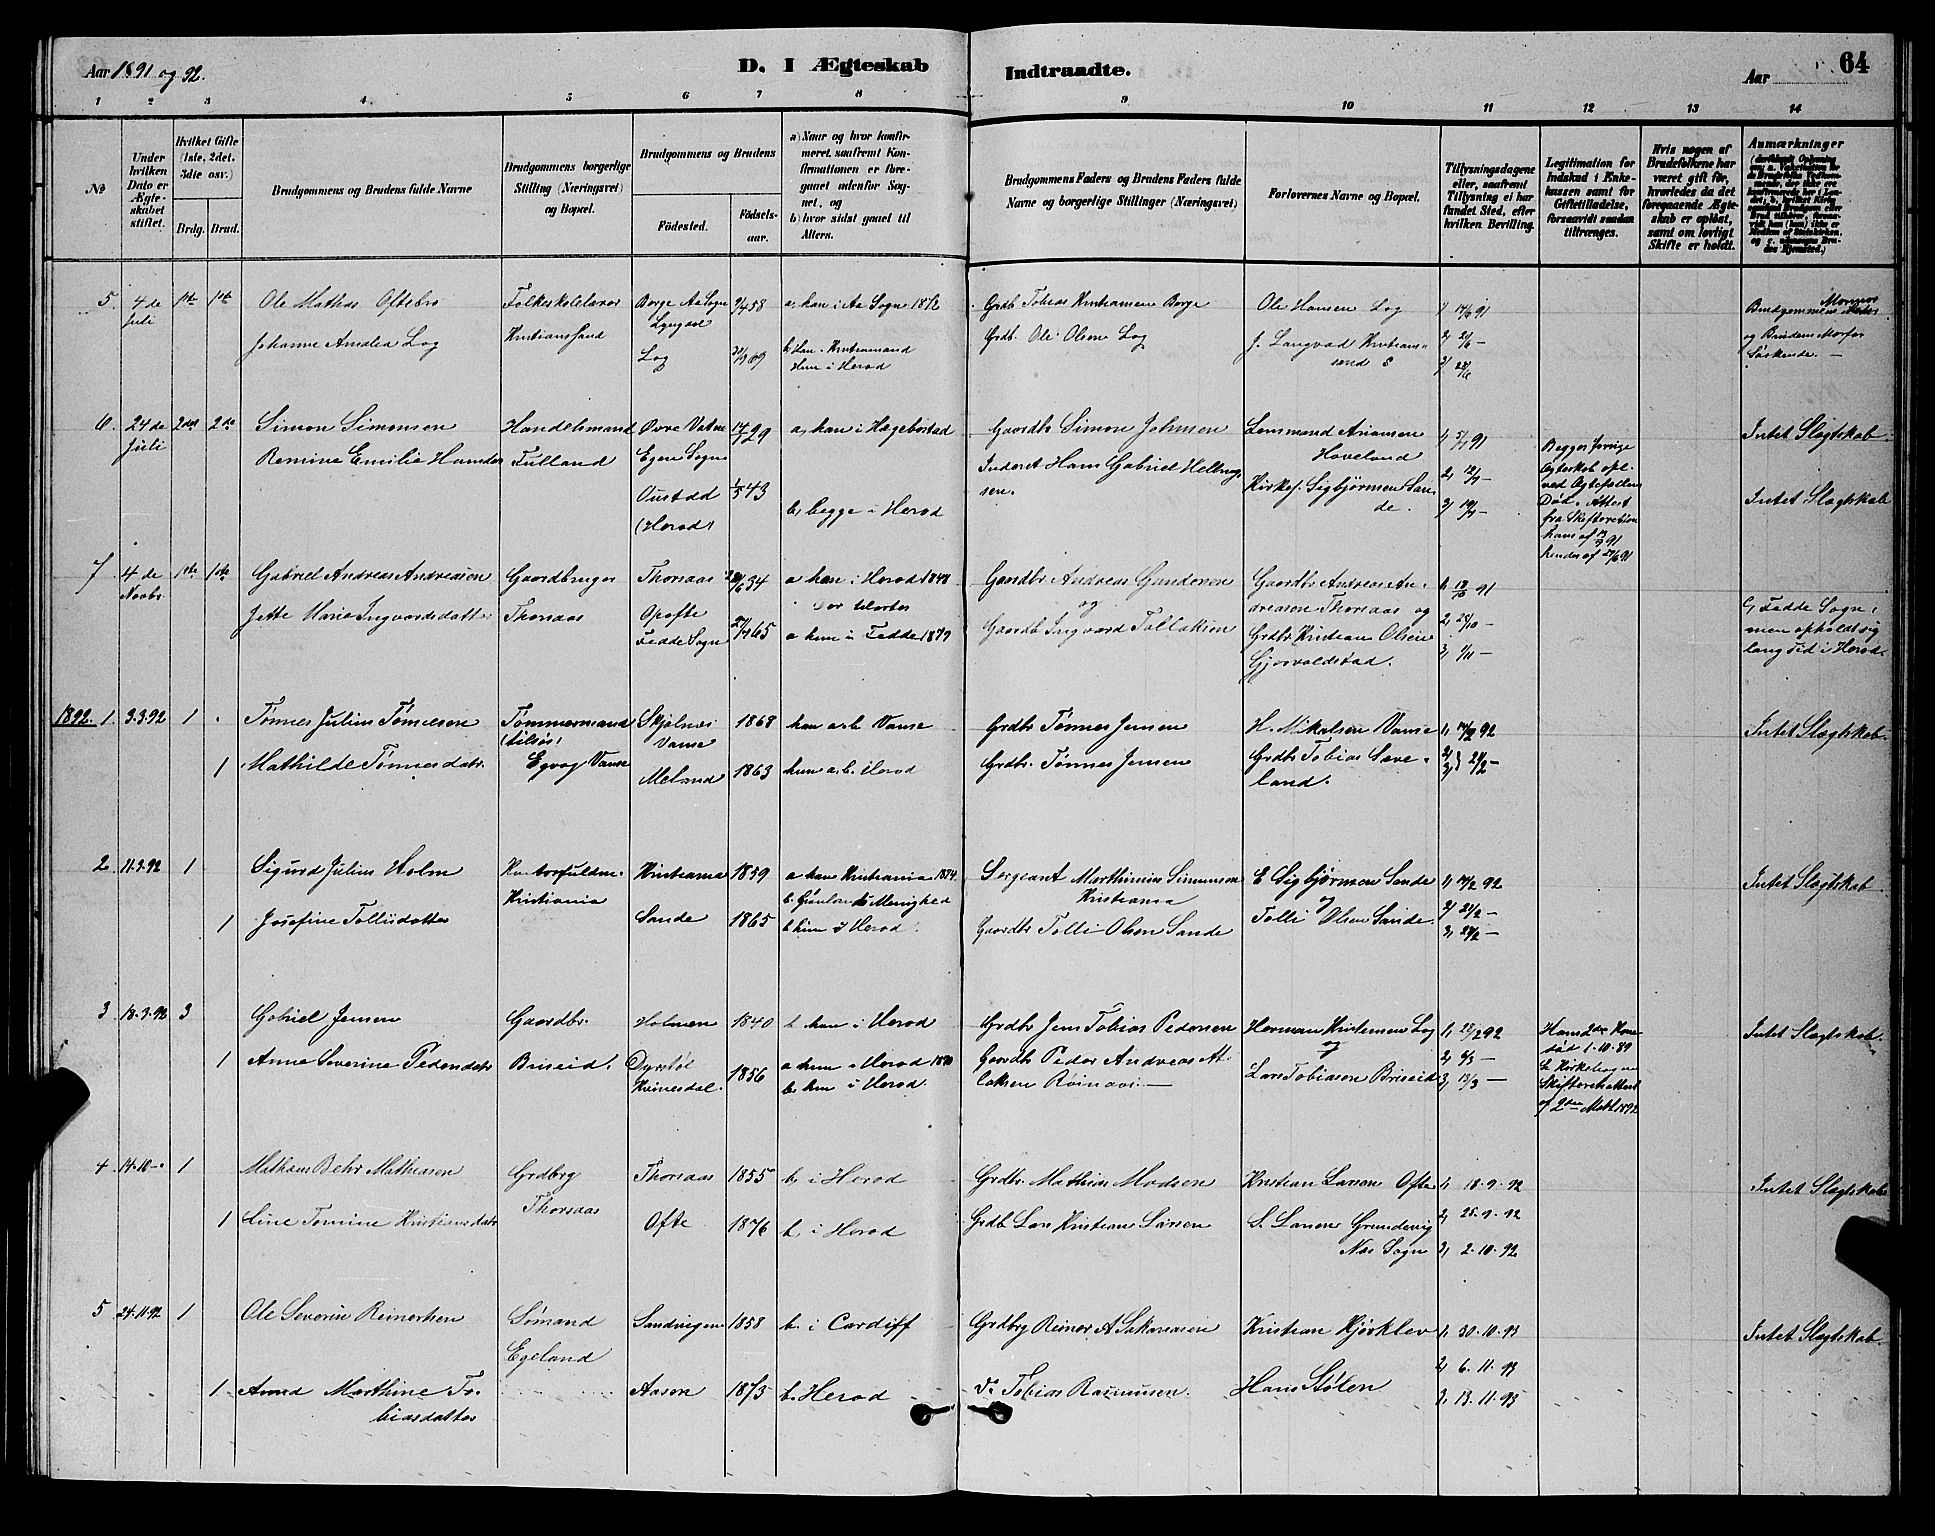 Aar 1891 og 92.
D. I Ægteskab
Indtraadte.
Aar
64
1 2 3 4 5 6 7 8 9 10 11 12 13 14
No
Under hvilken Dato er Ægteskabet stiftet.
Hvilket Gifte (1ste, 2det, 3die osv.)
Brdg. Brud.
Brudgommens og Brudens fulde Navne
Brudgommens borgerlige Stilling (Næringsvei) og Bopæl.
Brudgommens og Brudens
Födested.
Födselsaar.
a) Naar og hvor konfirmeret, saafremt Konfirmationen er foregaaet udenfor Sognet, og
b) hvor sidst gaaet til Alters.
Brudgommens Faders og Brudens Faders fulde Navne og borgerlige Stillinger (Næringsvei)
Forlovernes Navne og Bopæl.
Tillysningsdagene eller, saafremt Tillysning ei har fundet Sted, efter hvilken Bevilling.
Legitimation for Indskud i Enkekassen samt for Giftetilladelse, forsaavidt saadan tiltrænges.
Hvis nogen af Brudefolkene har været gift för, hvorledes da det foregaaende Ægteskab er oplöst, samt om lovligt Skifte er holdt.
Anmærkninger
5 4de Juli 1ste 1ste
Ole Mathas Oftebro
Folkeskolelærer Kristianssand
Borge Aa Sogn Lyngdal
9/4 58
a, han i Aa Sogn 1872
Grdb. Tobias Kristiansen Borge
Ole Hansen Log
1) 14/6 91
Johanne Amalia Log
Log
b, Han i Kristiansand
Hun i Herad
Grdb. Ole Olsen Log
J. Langvad Kristianssand S
2) 21/6 —
3) 28/6
Brudgommens Mormor
og Brudens Morfar Söskende. —
6 24de Juli 2det 2det
Simon Simonsen
Handelsmand Tulland
Øvre Vatne Egen Sogn
14/7 29
a, han i Hægebostad
Gaardbr Simon Johnsen
Lensmand Ariansen Haveland
1, 5/7 91
Intet Slægtskab.
Remine Emilie Hansdr
Oustad (Herad)
1/5 43
b, begge i Herad
Inderst Hans Gabriel Helbrigsen.
Kirkes. Sigbjörnsen Sande.
2, 12/7 —
3, 19/7 —
Begges forrige Ægteskab opl. ved Ægtefællens Död. Attest fra Skifteretten hans af 91 hendes af 27/6 91
Intet Slægtskab
7 4de Novbr. 1ste 1ste
Gabriel Andreas Andreasen
Gaardbruger Thorsaas
Thorsaas
34
a han i Herad 1848
Gaardbr Andreas Gundersen
og
Gaardbr Andreas Andreasen Thorsaas og
1, 18/10 91
Jette Maria Ingvardsdatter
Opofte Fedde Sogn
65
a hun i Fedde 1879
Gaardb Ingvard Tollaksen
Grdbr Kristian Olsen Gjervoldstad.
2, 25/10 —
3, 1/11 —
Fedde Sogn, men opholdt sig lang Tid i Herad.
1892. 1. 3.3.92 1
Tönnes Julius Tönnesen
Tömmermand (tilsös) Egvog Vanse
Skjolnes Vanse
1868
han a.b. Vanse
Grdbr Tönnes Jensen
H. Mikalsen Vanse
1, 14/2 92
Intet Slægtskab.
1 Mathilde Tönnesdatr.
Meland
1863
hun a.b. Herad
Grdbr. Tönnes Jensen
Grdbr Tobias Saveland.
2, 3, 21/2 —
2 11.3.92 1
Sigurd Julius Holm
Kontorfuldm. Kristiania
Kristiania
1859
a han Kristiania 1874.
b. Grönlands Menighed
Sergeant Marthinius Simonsen Kristiania
E Sigbjörnsen Sande
og
1, 14/2 92
2, 21/2 —
Intet Slægtskab
1 Josefine Tollisdatter
Sande
1865
b hun i Herad.
Gaardbr Tolli Olsen Sande
Tolli Olsen Sande.
3, 28/2 —
3 18.3.92 3
Gabriel Jensen
Gaardbr. Briseid.
Holmen
1840
b han i Herad
Grdbr Jens Tobias Pedersen
Herman Kristensen Log
og
1, 28/2 92
Hans 2den Kone död 1.10.89
Intet Slægtskab.
1 Anne Severine Pedersdatr
Dyrstöl Kvinesdal.
1856
a hun i Herad 1870
b. hun i Herad.
Gaardbr Peder Andreas Atlaksen Röinaas. —
Lars Tobiasen Briseid
2, 6/3 —
3, 13/3 —
Kirkebogen Skifteretsattest af 2den Mars 1892
4 14.10 — 1
Mathias Behr Mathiasen
Grdbrg Thorsaas
Thorsaas
1855
b. i Herad
Grdbr. Mathias Madsen
Kristian Larsen Ofte
1, 18.9.92
Intet Slægtskab.
1 Line Tomine Kristiansdatr
Ofte
1876
b. i Herad
Grdb Lars Kristian Larsen
S. Larsen Grundevig Næs Sogn
2, 25.9.92
3, 2.10.92
5 24.11.92 1
Ole Severin Reinertsen
Sömand Egeland
Sandvigen
1858
b. i Cardiff
Grdbrg Reiner A Sakariasen
Kristian Kjörklev
1, 30.10.93
2, 6.11.93
Intet Slægtskab.
1 Anna Marthine Tobiasdatter
Aasen
1873
b. Herad
Do Tobias Rasmusen.
Hans Stölen
3, 13.11.93